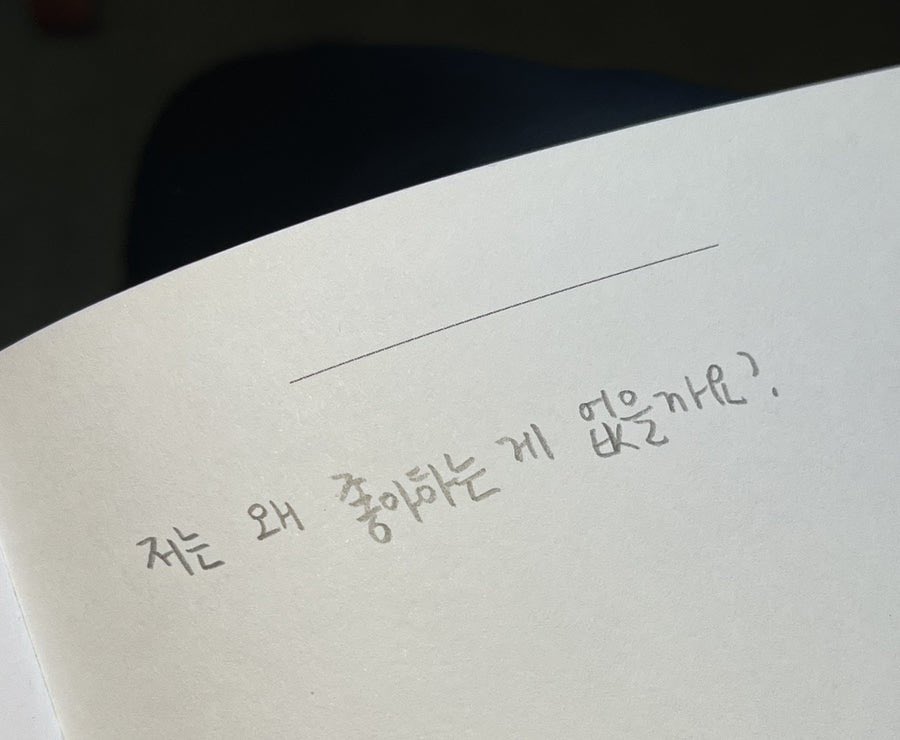 저는 왜 좋아하는 게 없을까요?